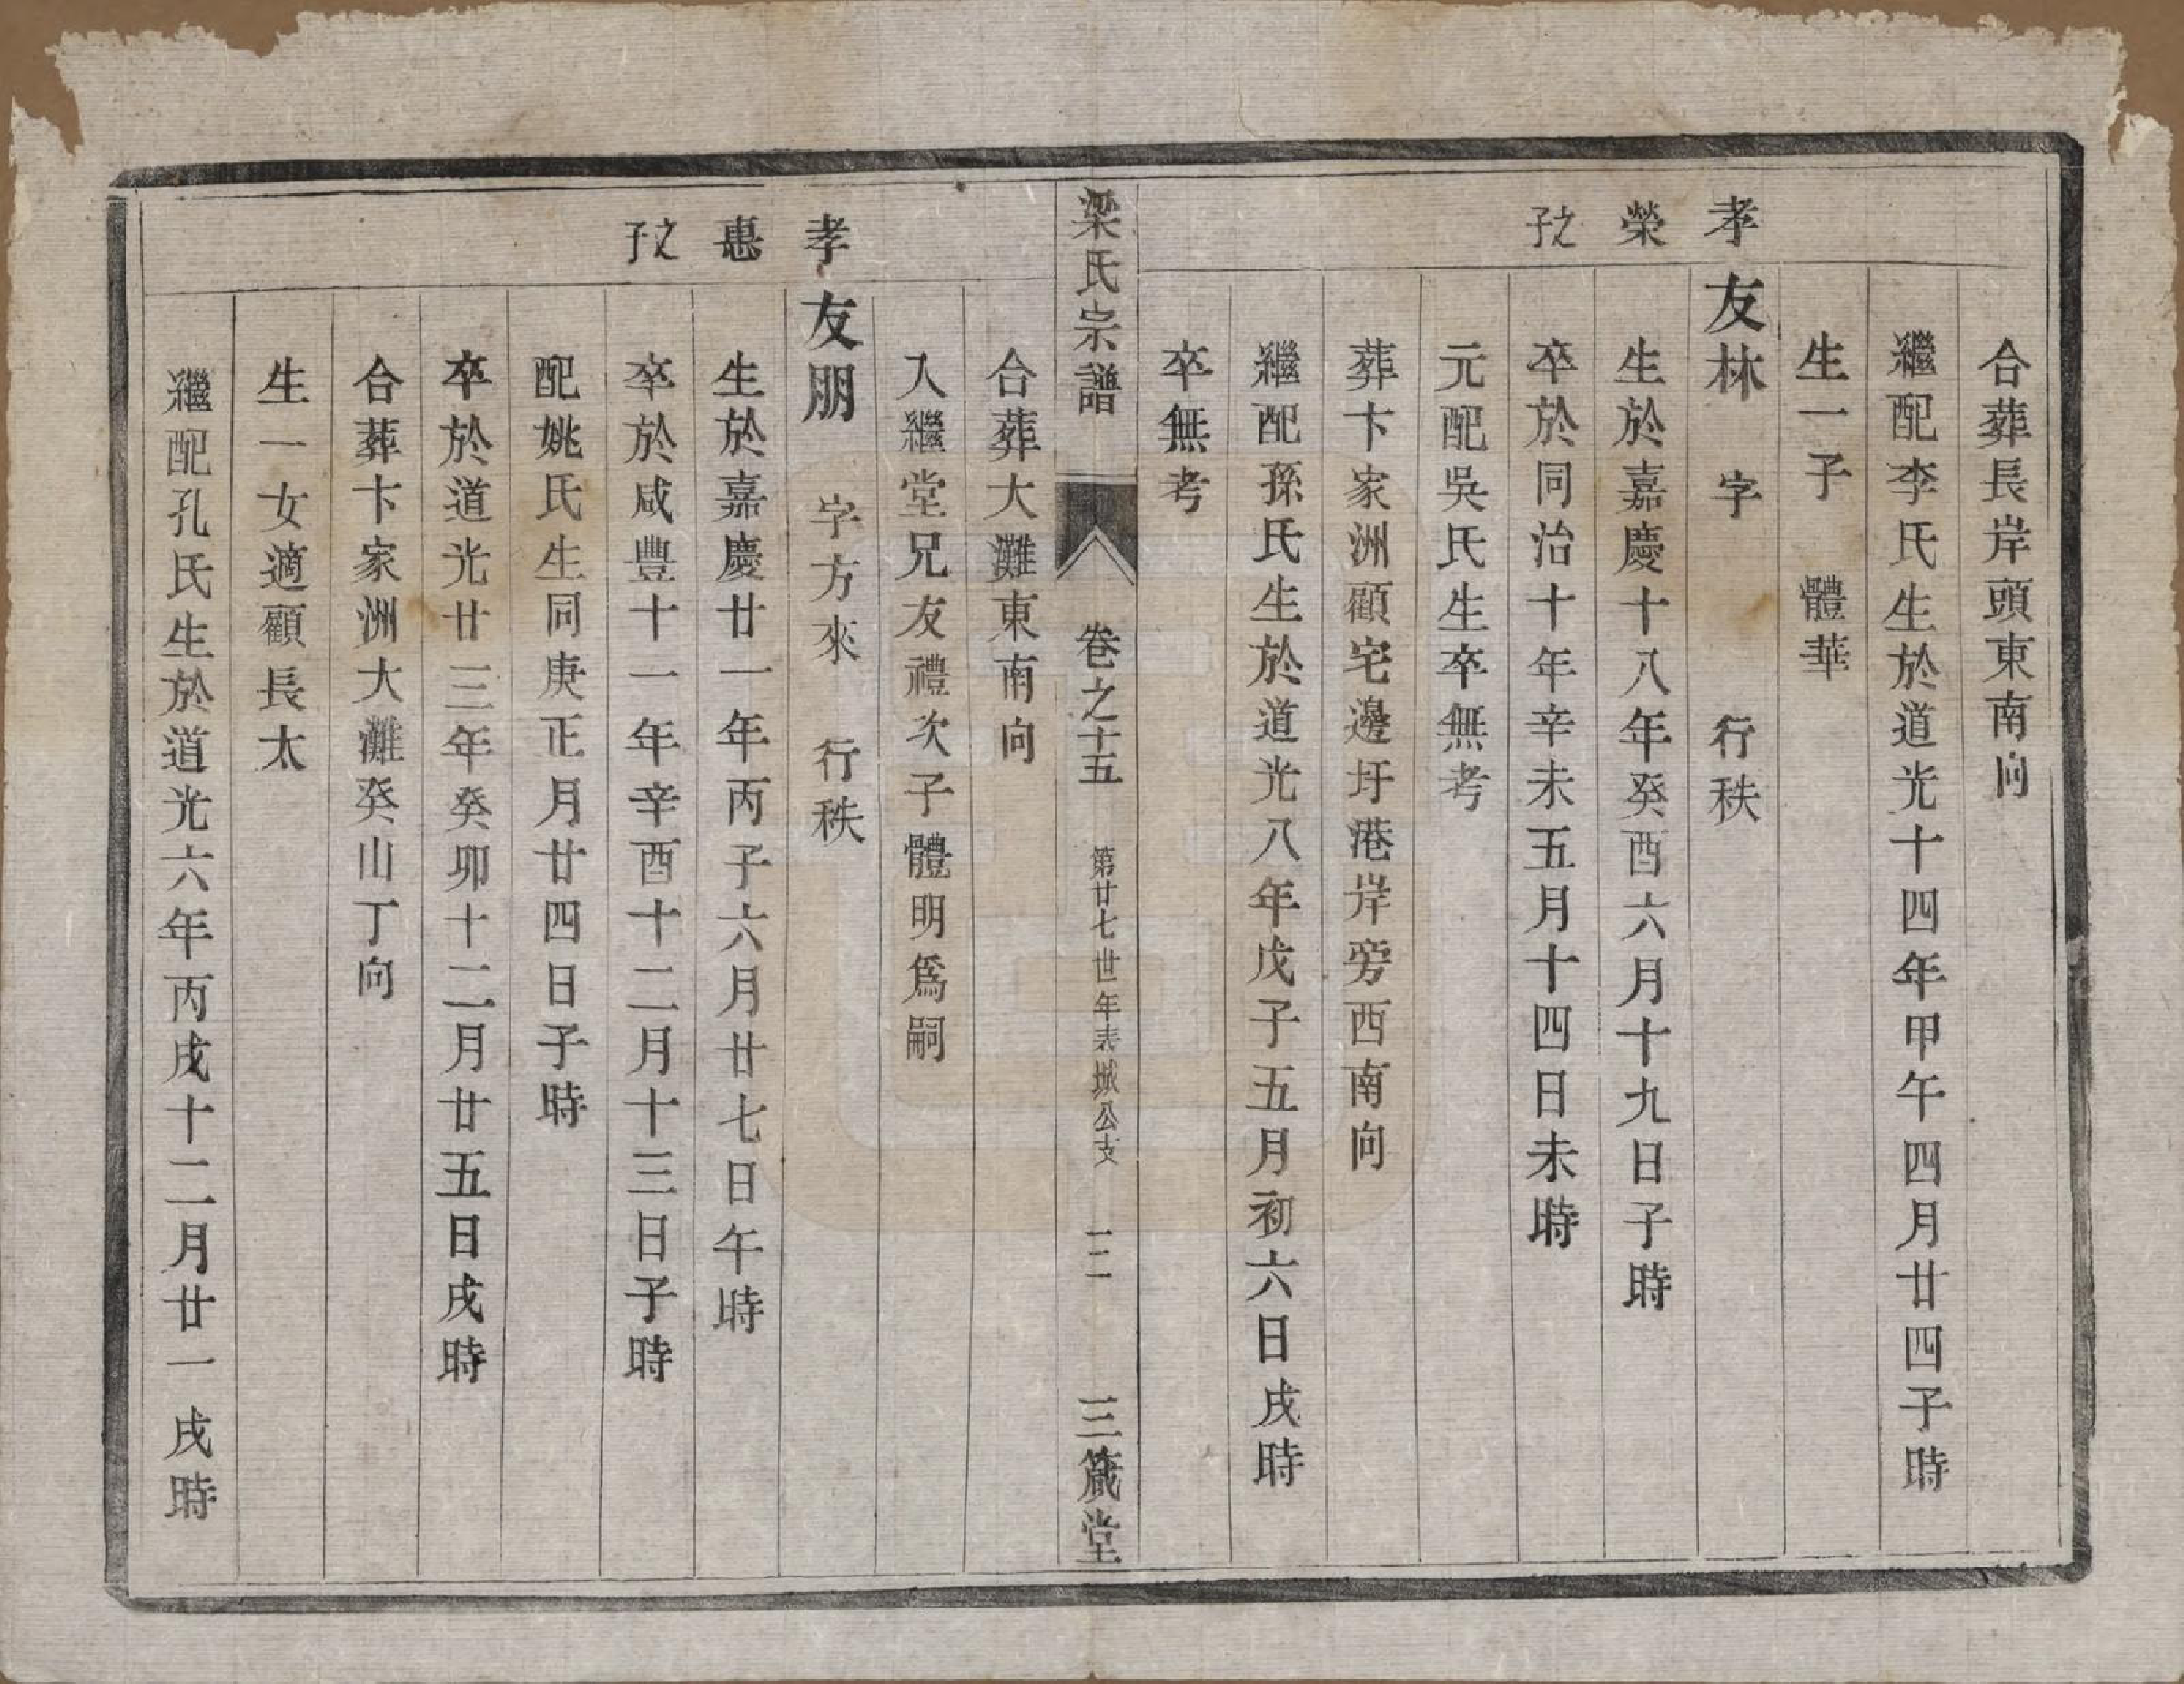 合葬長岸頭東南向
繼配李氏生於道光十四年甲午四月廿四子時
生一子 體華
孝榮之子
友林 字 行秩
生於嘉慶十八年癸酉六月十九日子時
卒於同治十年辛未五月十四日未時
元配吳氏生卒無考
葬卞家洲顧宅邊圩港岸旁西南向
繼配孫氏生於道光八年戊子五月初六日戌時
卒無考
梁氏宗譜 卷之十五 第廿七世年表城公支 一二 三箴堂
合葬大灘東南向
入繼堂兄友禮次子體明爲嗣
孝惠之子
友朋 字方來 行秩
生於嘉慶廿一年丙子六月廿七日午時
卒於咸豐十一年辛酉十二月十三日子時
配姚氏生同庚正月廿四日子時
卒於道光廿三年癸卯十二月廿五日戌時
合葬卞家洲大灘癸山丁向
生一女適顧長太
繼配孔氏生於道光六年丙戌十二月廿一戌時